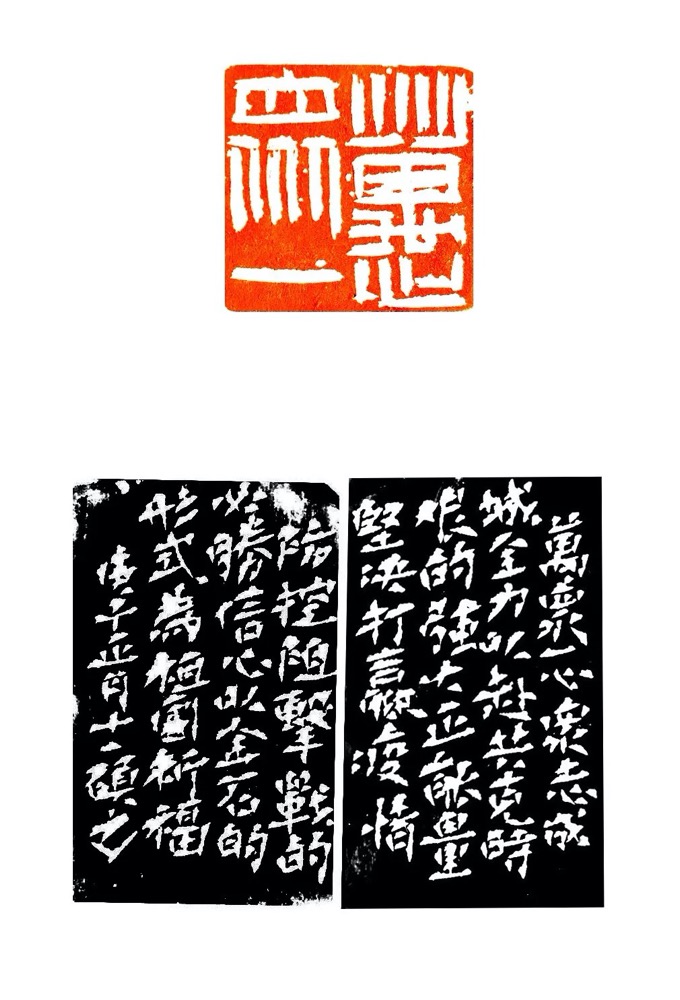 萬眾一心
萬眾一心眾志成
城全力以赴共克時
艱的強大正能量
堅決打贏疫情
防控阻擊戰的
必勝信心以金石的
形式為祖國祈福
庚子正月十二碩之